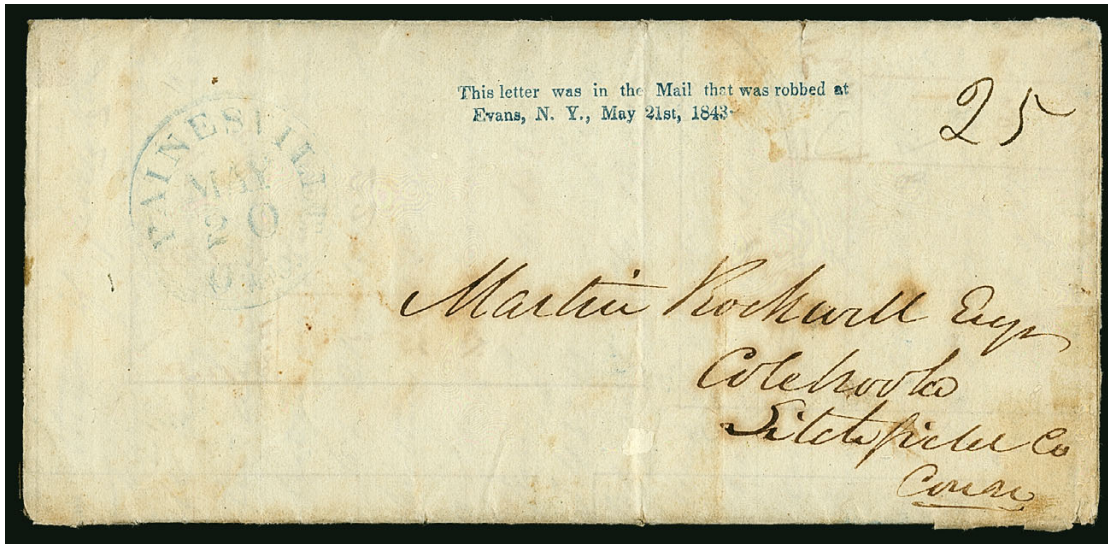 This letter was in the Mail that was robbed at
Evans, N. Y., May 21st, 1843
25
PAINESVILLE
MAY
20
OHIO
Martin Rockwell Esqr
Colebrook
Litchfield Co
Conn